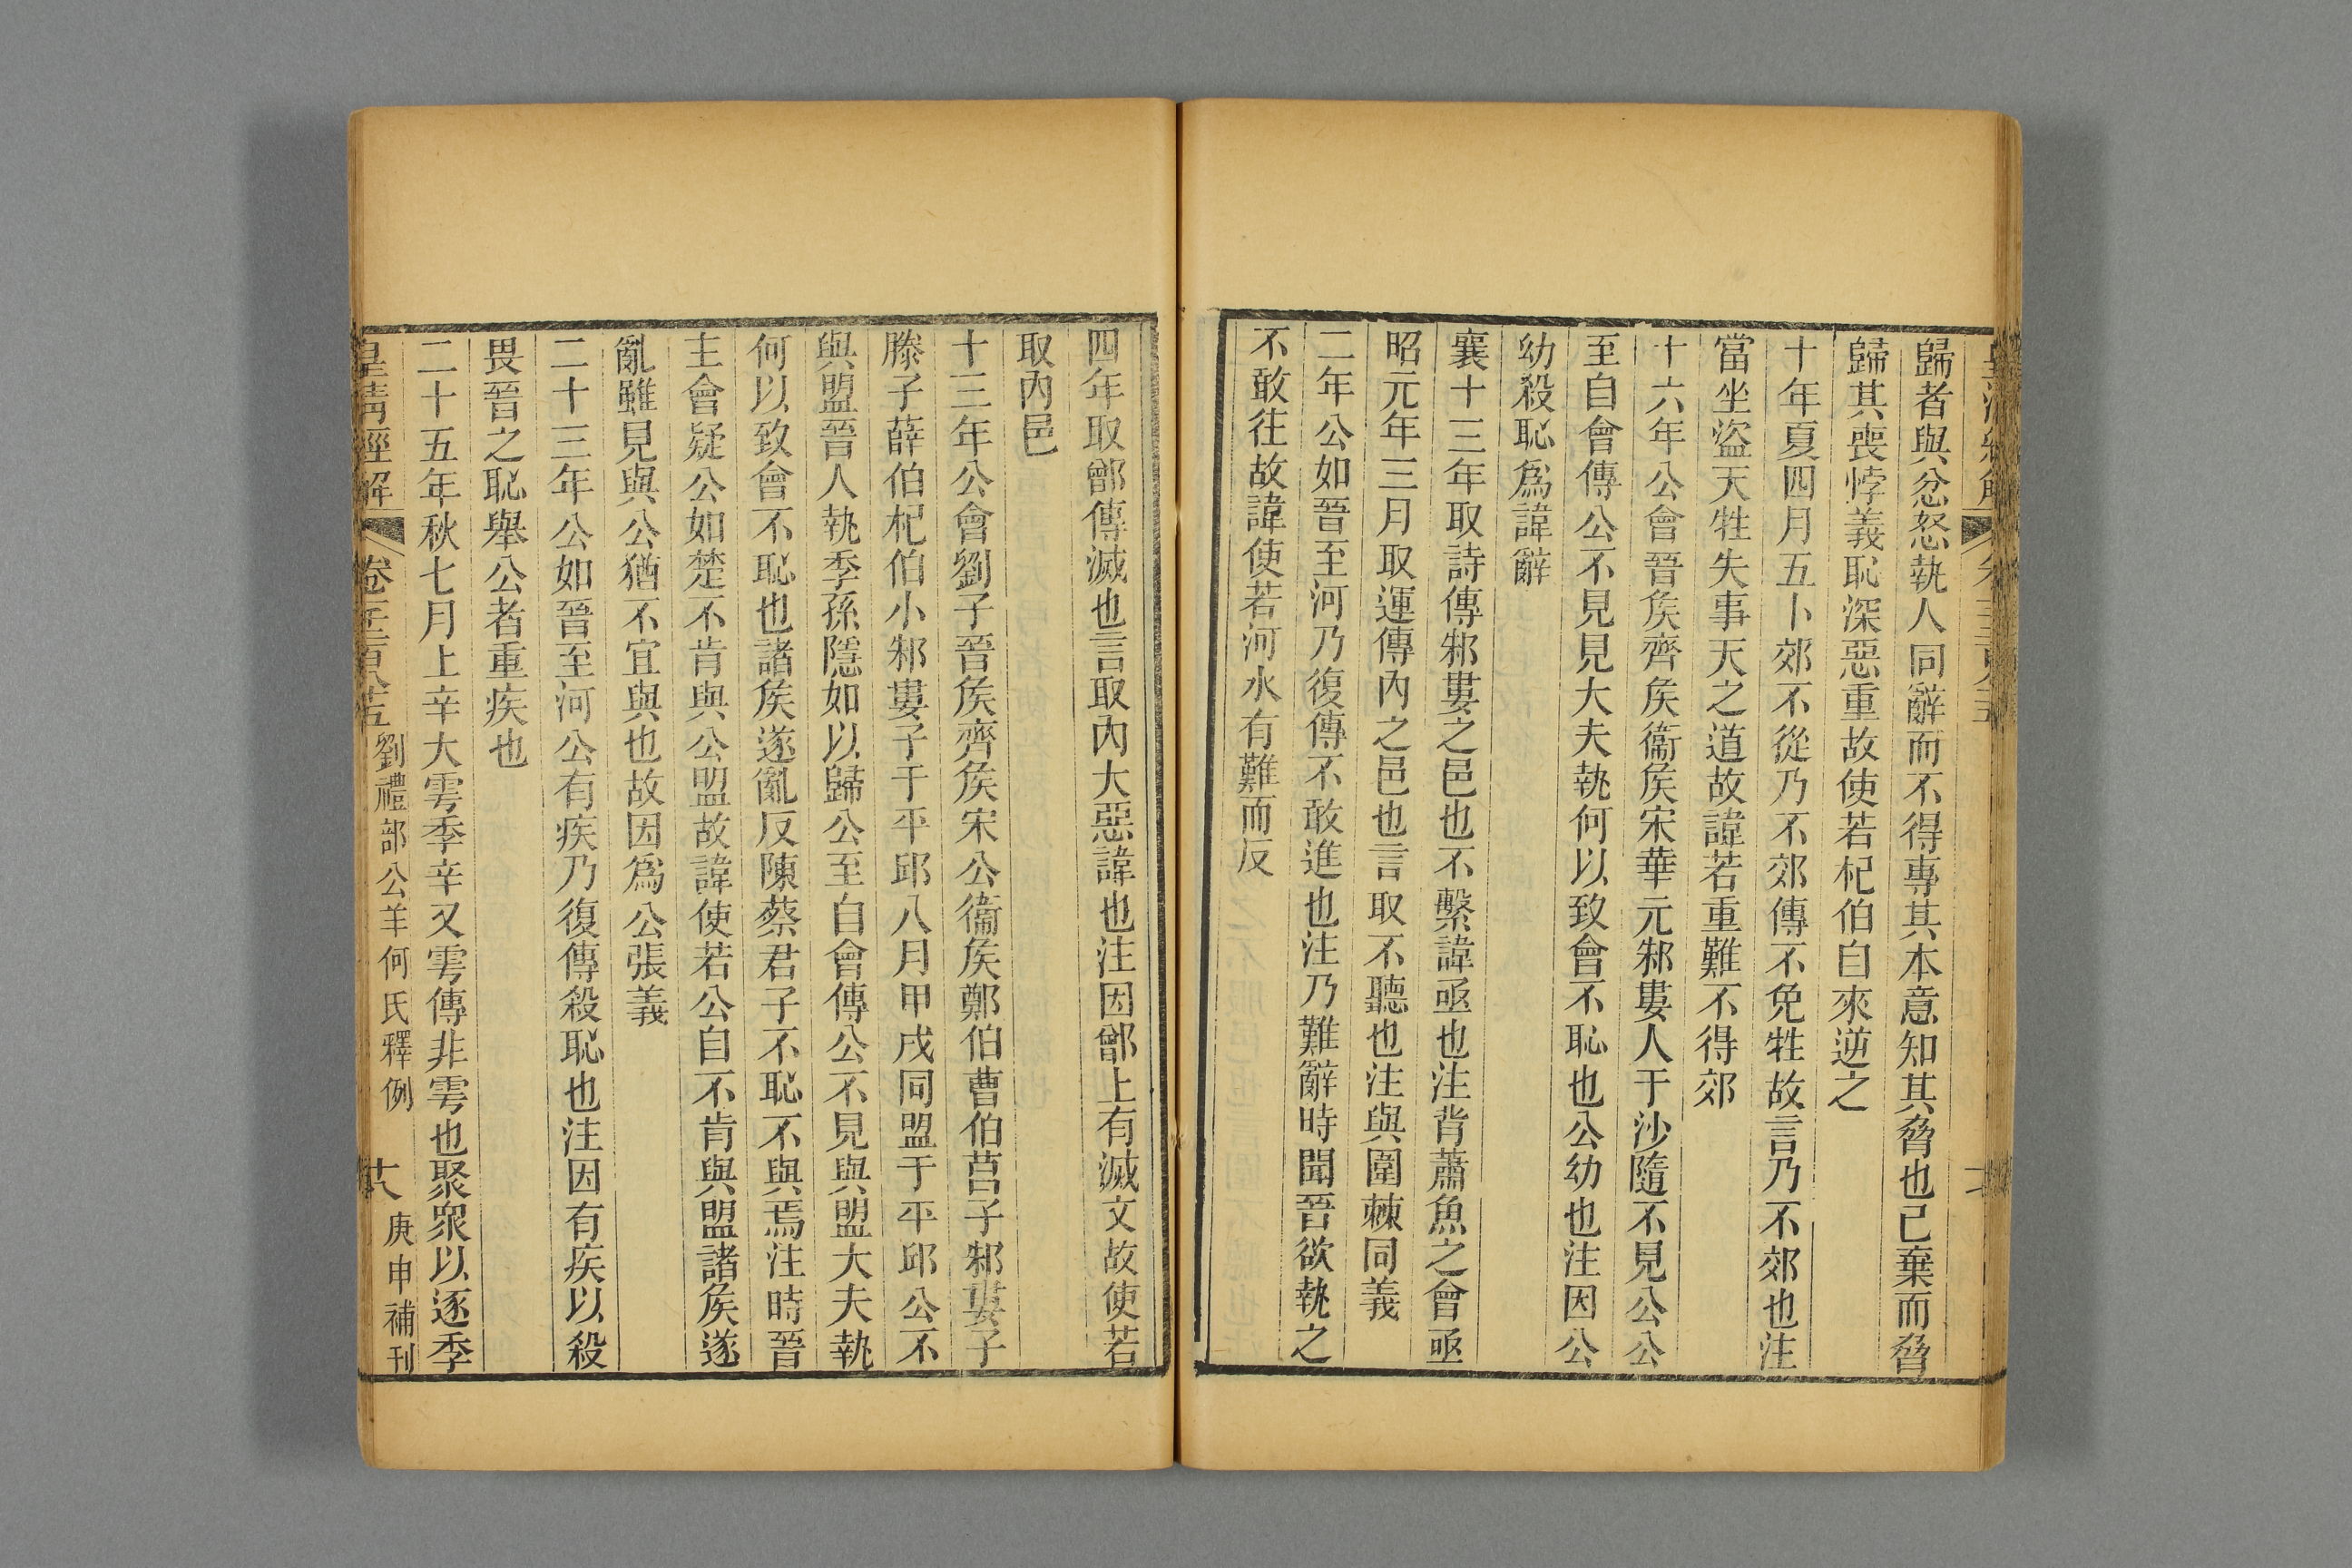 歸者與忿怒執人同辭而不得專其本意知其脅也已棄而脅
歸其喪悖義恥深惡重故使若杞伯自來逆之
十年夏四月五卜郊不從乃不郊傳不免牲故言乃不郊也注
當坐盜天牲失事天之道故諱若重難不得郊
十六年公會晉矦齊矦衞矦宋華元邾婁人于沙隨不見公公
至自會傳公不見見大夫執何以致會不恥也公幼也注因公
幼殺恥爲諱辭
襄十三年取詩傳邾婁之邑也不繫諱亟也注背蕭魚之會亟
昭元年三月取運傳內之邑也言取不聽也注與圍棘同義
二年公如晉至河乃復傳不敢進也注乃難辭時聞晉欲執之
不敢往故諱使若河水有難而反
四年取鄫傳滅也言取內大惡諱也注因鄫上有滅文故使若
取內邑
十三年公會劉子晉矦齊矦宋公衞矦鄭伯曹伯莒子邾婁子
滕子薛伯杞伯小邾婁子于平邱八月甲戌同盟于平邱公不
與盟晉人執季孫隱如以歸公至自會傳公不見與盟大夫執
何以致會不恥也諸矦遂亂反陳蔡君子不恥不與焉注時晉
主會疑公如楚不肯與公盟故諱使若公自不肯與盟諸矦遂
亂雖見與公猶不宜與也故因爲公張義
二十三年公如晉至河公有疾乃復傳殺恥也注因有疾以殺
畏晉之恥舉公者重疾也
二十五年秋七月上辛大雩季辛又雩傳非雩也聚衆以逐季
皇清經解 卷 劉禮部公羊何氏釋例 十八 庚申補刊